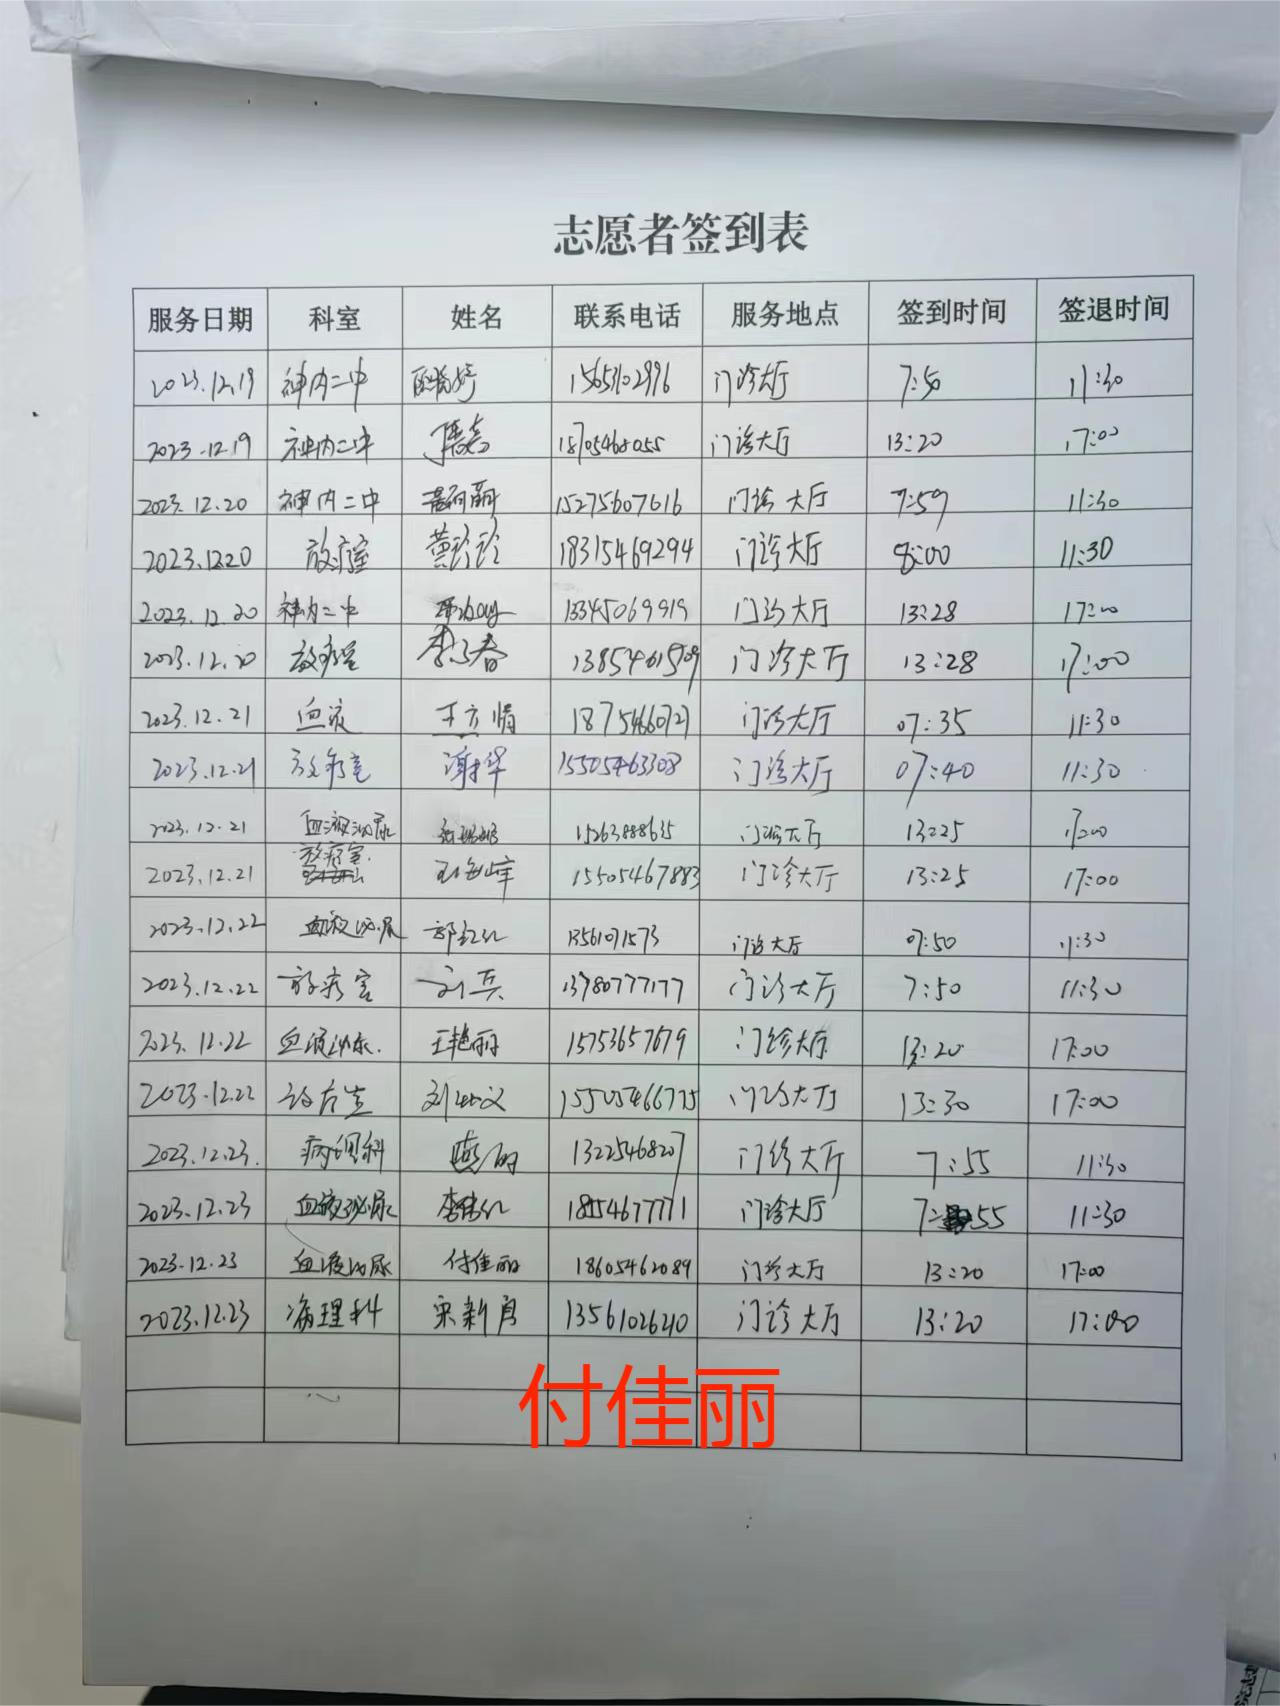 志愿者签到表
服务日期 科室 姓名 联系电话 服务地点 签到时间 签退时间
2023.12.19 神内二中 门诊大厅 7:50 11:30
2023.12.19 神内二中 18705468055 门诊大厅 13:20 17:00
2023.12.20 神内二中 15275607616 门诊大厅 7:59 11:30
2023.12.20 放疗室 黄珍珍 18315469294 门诊大厅 8:00 11:30
2023.12.20 神内二中 13345069919 门诊大厅 13:28 17:00
2023.12.20 放疗室 李子春 门诊大厅 13:28 17:00
2023.12.21 血液 王立娟 18754660727 门诊大厅 07:35 11:30
2023.12.21 放疗室 谢华 15505463308 门诊大厅 07:40 11:30
2023.12.21 血液泌尿 15263888635 门诊大厅 13:25 17:00
2023.12.21 放疗室 王海峰 15505467883 门诊大厅 13:25 17:00
2023.12.22 血液泌尿 郭红 13561071573 门诊大厅 07:50 11:30
2023.12.22 放疗室 刘兵 13780777177 门诊大厅 7:50 11:30
2023.12.22 血液泌尿. 王艳丽 15753657679 门诊大厅 13:20 17:00
2023.12.22 放疗室 15505466775 门诊大厅 13:30 17:00
2023.12.23. 病理科 13225468207 门诊大厅 7:55 11:30
2023.12.23 血液泌尿 18554677771 门诊大厅 7:55 11:30
2023.12.23 血液泌尿 付佳丽 18605462089 门诊大厅 13:20 17:00
2023.12.23 病理科 宋新月 13561026210 门诊大厅 13:20 17:00
付佳丽